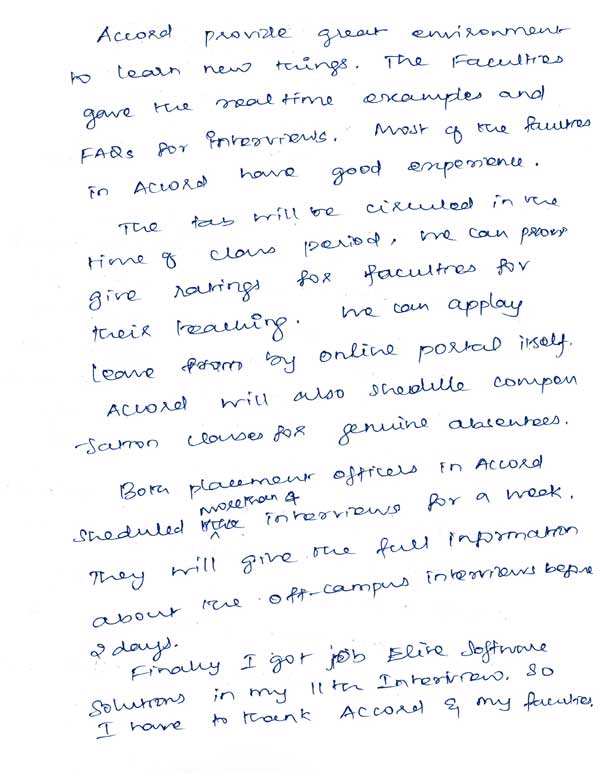 Accord provide great environment
to learn new things. The Faculties
gave the real time examples and
FAQs for interviews. Most of the faculties
in Accord have good experience.
The tab will be circuled in the
time of class period, we can
give ratings for faculties for
their teaching. We can applay
leave by online portal itself.
Accord will also shedule compen
-sation classes for genuine absentees.
Both placement officers in Accord
sheduled more than 4 interviews for a week.
They will give the full information
about the off-campus interviews before
2 days.
Finally I got job Elite Software
Solutions in my 11th Interview. So
I have to thank Accord & my faculties.